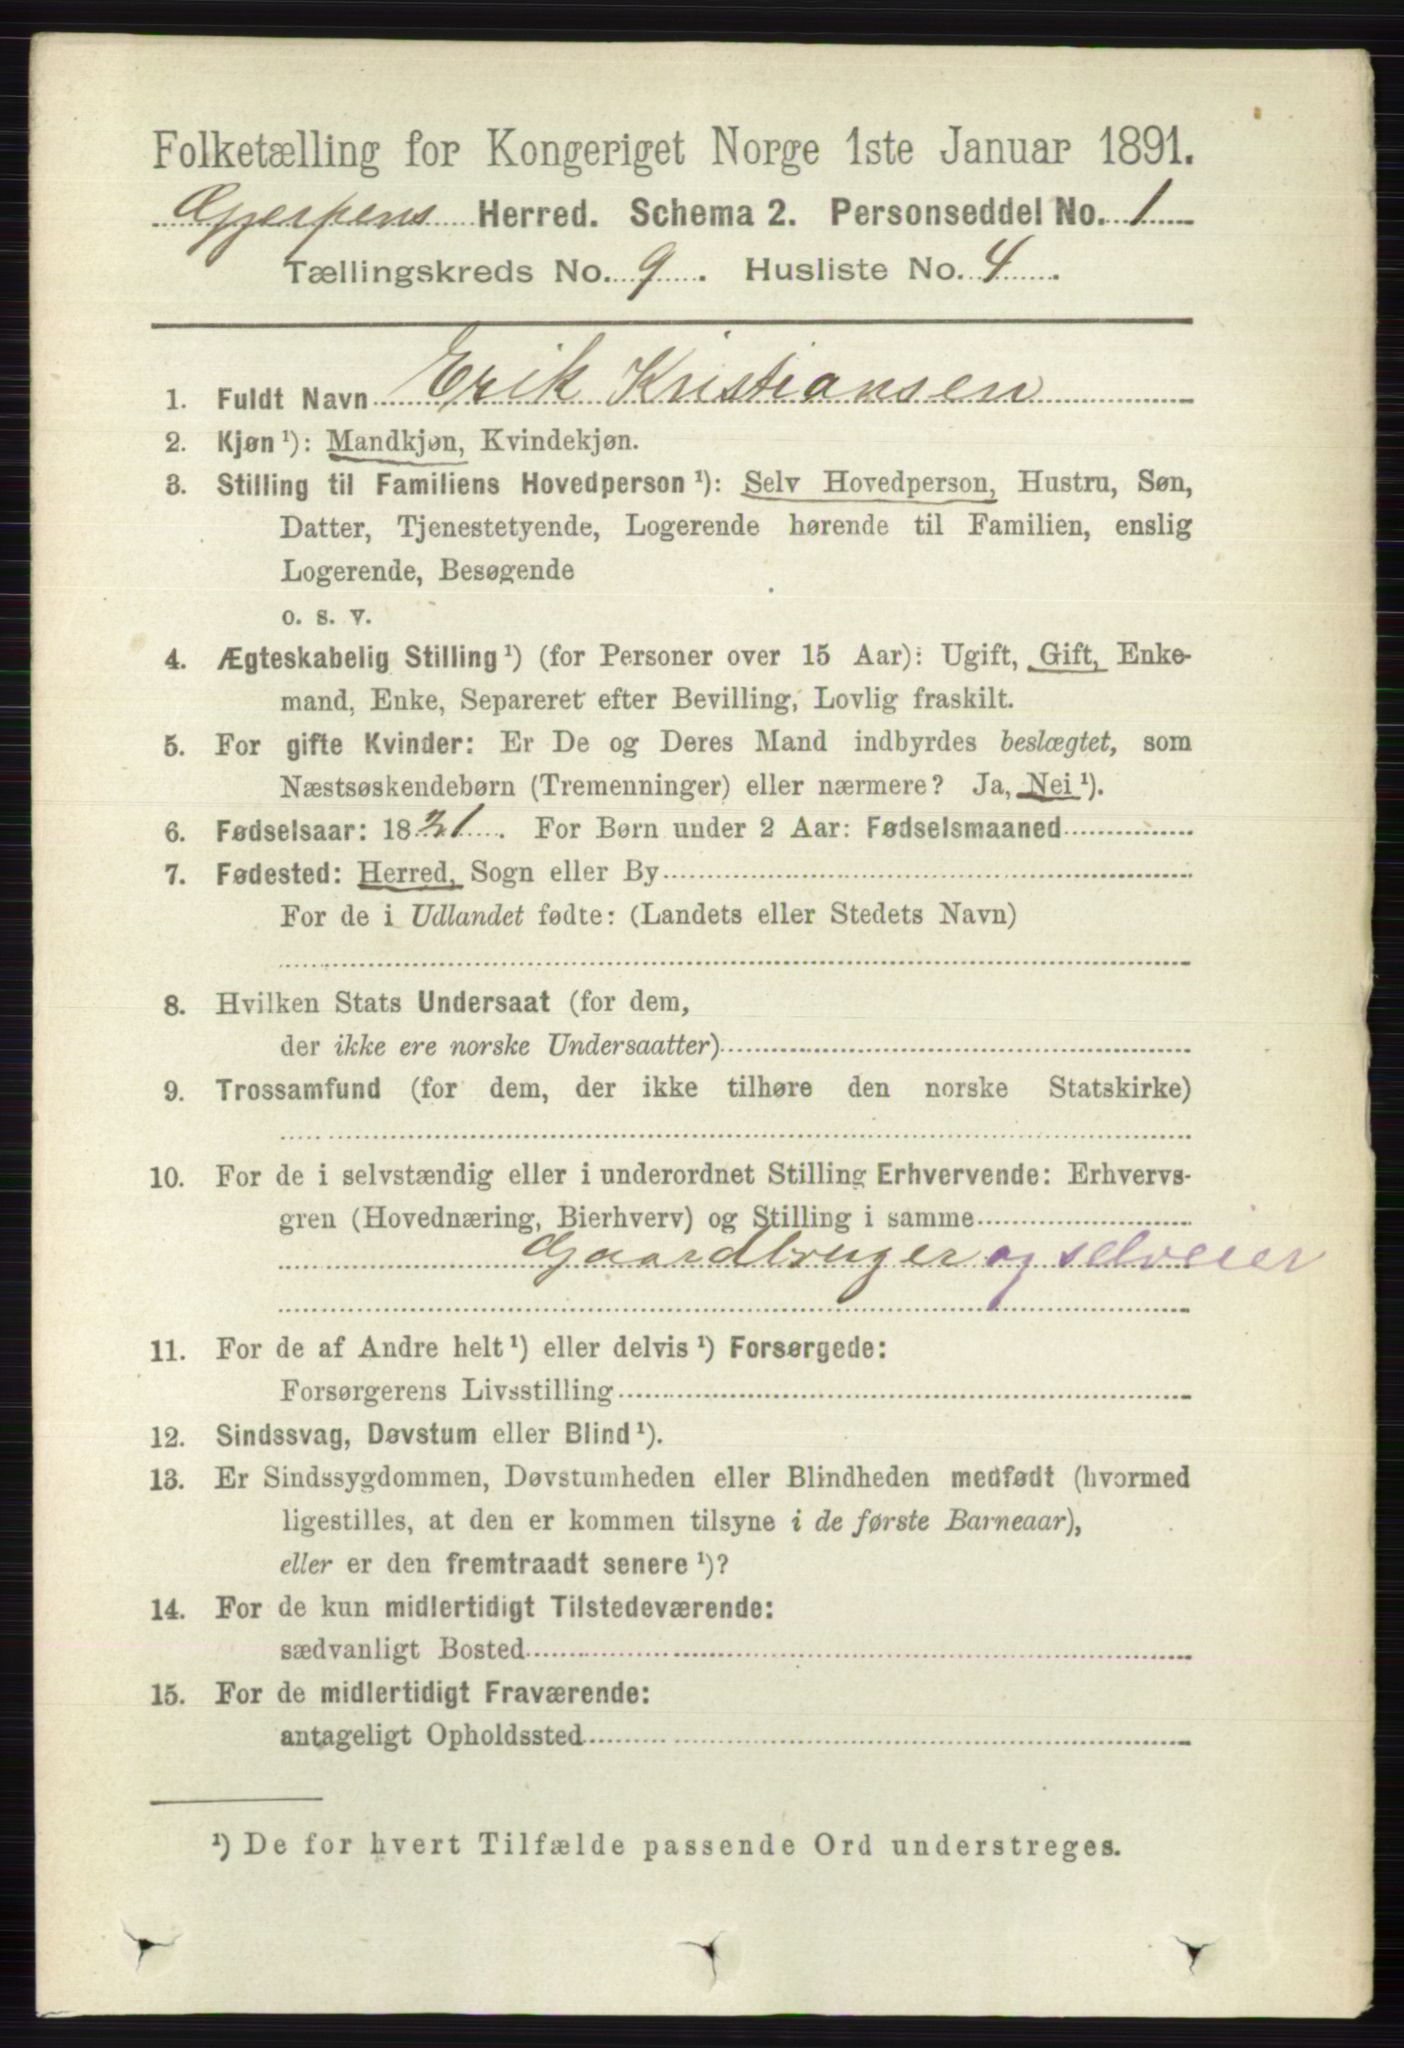 Folketælling for Kongeriget Norge 1ste Januar 1891.
Gjerpens Herred. Schema 2. Personseddel No. 1
Tællingskreds No. 9. Husliste No. 4.
1. Fuldt Navn Erik Kristiansen
2. Kjøn¹): Mandkjøn, Kvindekjøn.
3. Stilling til Familiens Hovedperson¹): Selv Hovedperson, Hustru, Søn,
Datter, Tjenestetyende, Logerende hørende til Familien, enslig
Logerende, Besøgende
o. s. v.
4. Ægteskabelig Stilling¹) (for Personer over 15 Aar): Ugift, Gift, Enke-
mand, Enke, Separeret efter Bevilling, Lovlig fraskilt.
5. For gifte Kvinder: Er De og Deres Mand indbyrdes beslægtet, som
Næstsøskendebørn (Tremenninger) eller nærmere? Ja, Nei¹).
6. Fødselsaar: 18 . For Børn under 2 Aar: Fødselsmaaned
7. Fødested: Herred, Sogn eller By
For de i Udlandet fødte: (Landets eller Stedets Navn)
8. Hvilken Stats Undersaat (for dem,
der ikke ere norske Undersaatter)
9. Trossamfund (for dem, der ikke tilhøre den norske Statskirke)
10. For de i selvstændig eller i underordnet Stilling Erhvervende: Erhvervs-
gren (Hovednæring, Bierhverv) og Stilling i samme
Gaardbruger og selveier
11. For de af Andre helt¹) eller delvis¹) Forsørgede:
Forsørgerens Livsstilling
12. Sindssvag, Døvstum eller Blind¹).
13. Er Sindssygdommen, Døvstumheden eller Blindheden medfødt (hvormed
ligestilles, at den er kommen tilsyne i de første Barneaar),
eller er den fremtraadt senere¹)?
14. For de kun midlertidigt Tilstedeværende:
sædvanligt Bosted
15. For de midlertidigt Fraværende:
antageligt Opholdssted
¹) De for hvert Tilfælde passende Ord understreges.